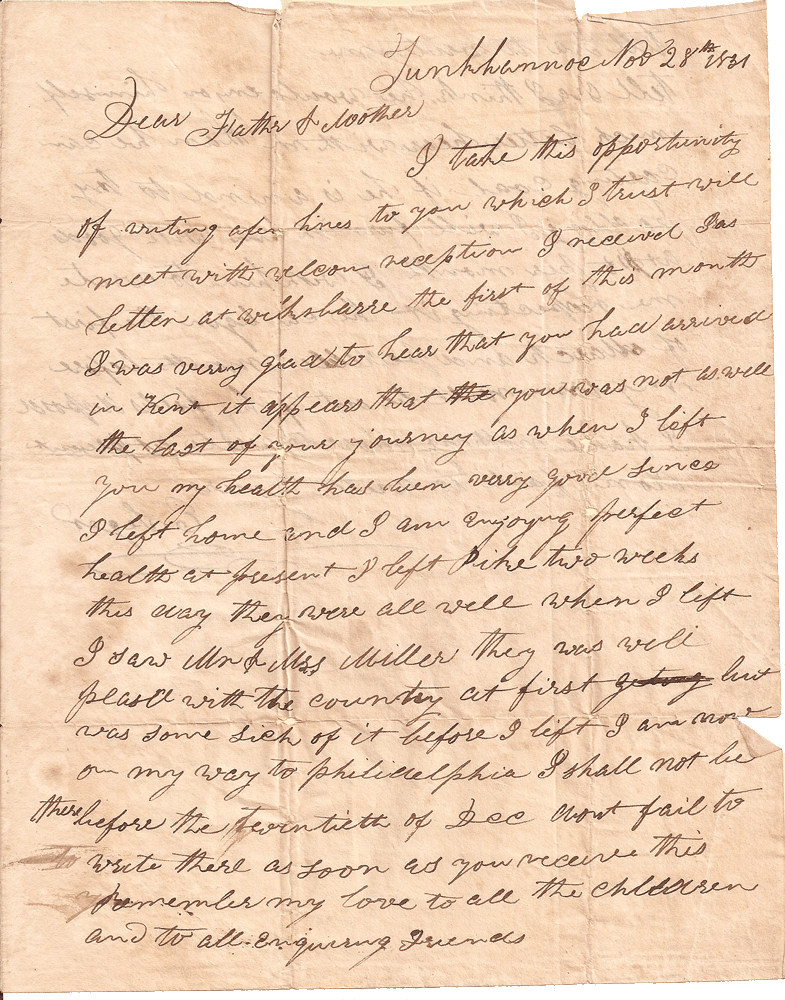 Tunkhannoc Nov 28th 1831
Dear Father & Mother
I take this opportunity
of writing a few lines to you which I trust will
meet with welcom reception I received Ias
letter at wilksbarre the first of this month
I was verry glad to hear that you had arrived
in Kent it appears that the you was not as well
the last of your journey as when I left
you my health has been verry good since
I left home and I am enjoyng perfect
health at present I left Pike two weeks
this day they were all well when I left
I saw Mr & Mrs Miller they was well
pleasd with the country at first but
was some sick of it before I left I am now
on my way to philidelphia I shall not be
there before the twentieth of Dec dont fail to
write there as soon as you receive this
remember my love to all the children
and to all enquiring friends